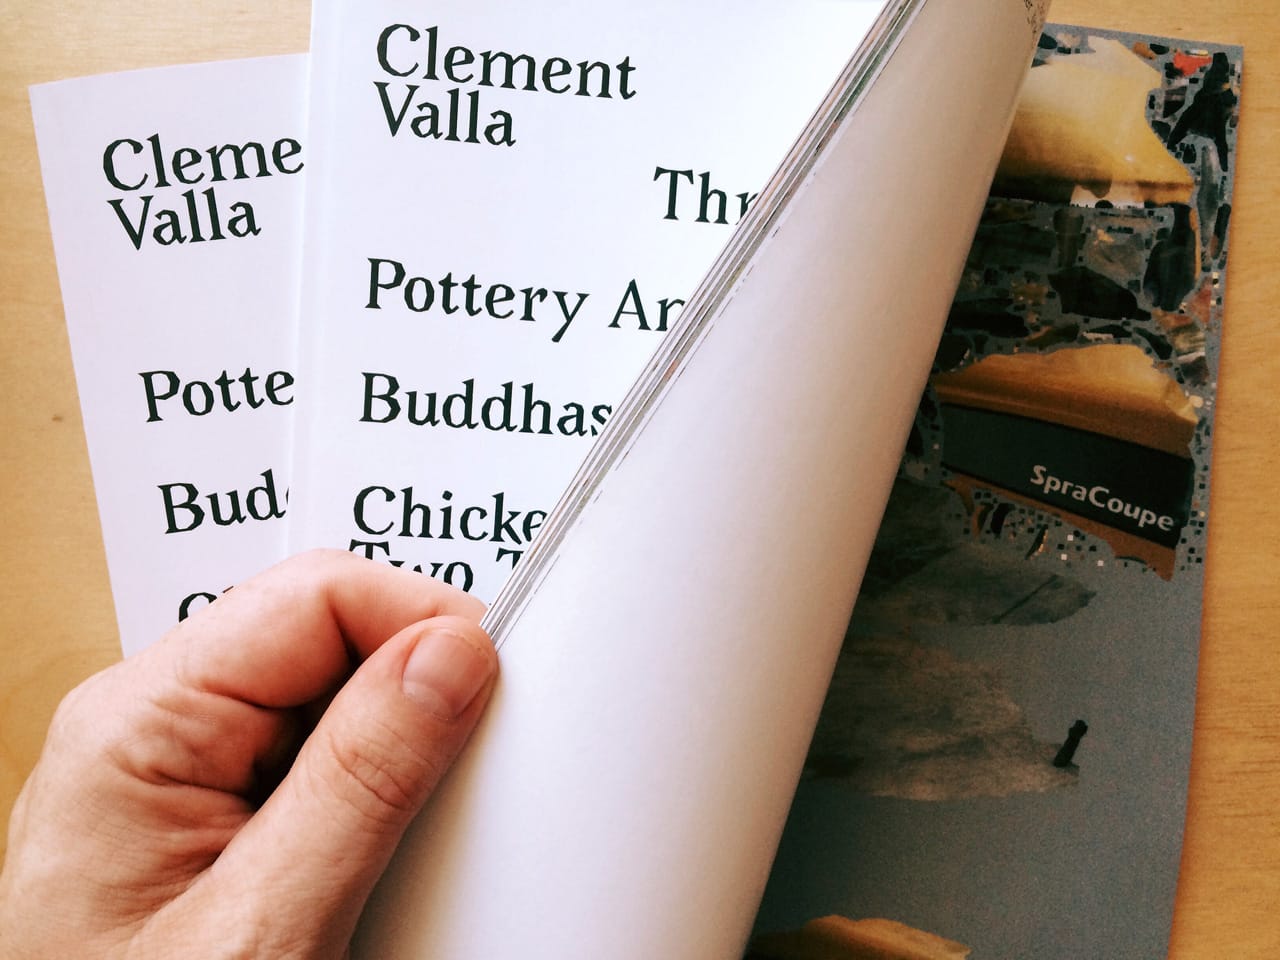 Cleme
Valla
Potte
Bud
Clement
Valla
Thr
Pottery Ar
Buddhas
Chicke
Two T
SpraCoupe